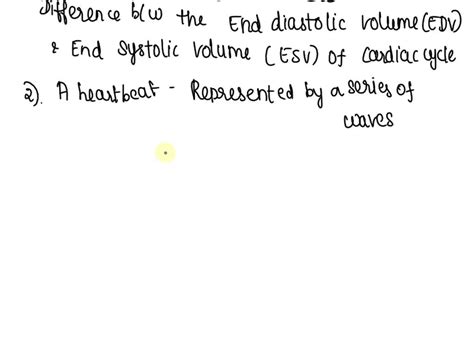 Difference b/w the End diastolic volume (EDV)
& End Systolic Volume (ESV) of cardiac cycle
2). A heartbeat - Represented by a series of
waves